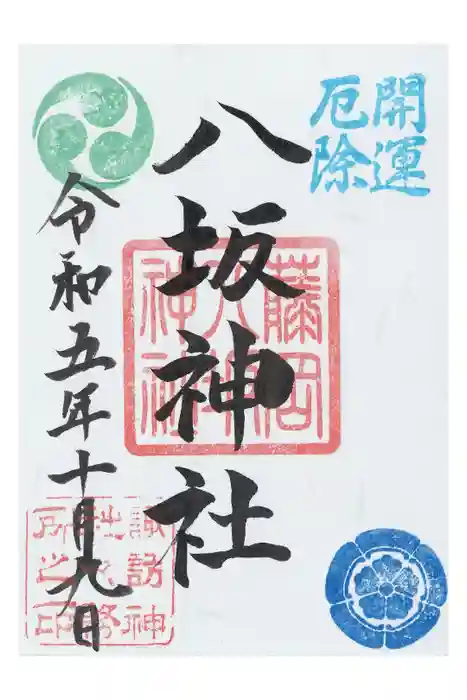 開運
厄除
八坂神社
藤岡
八坂
神社
令和五年十月九日
諏訪神
社社務
所之印